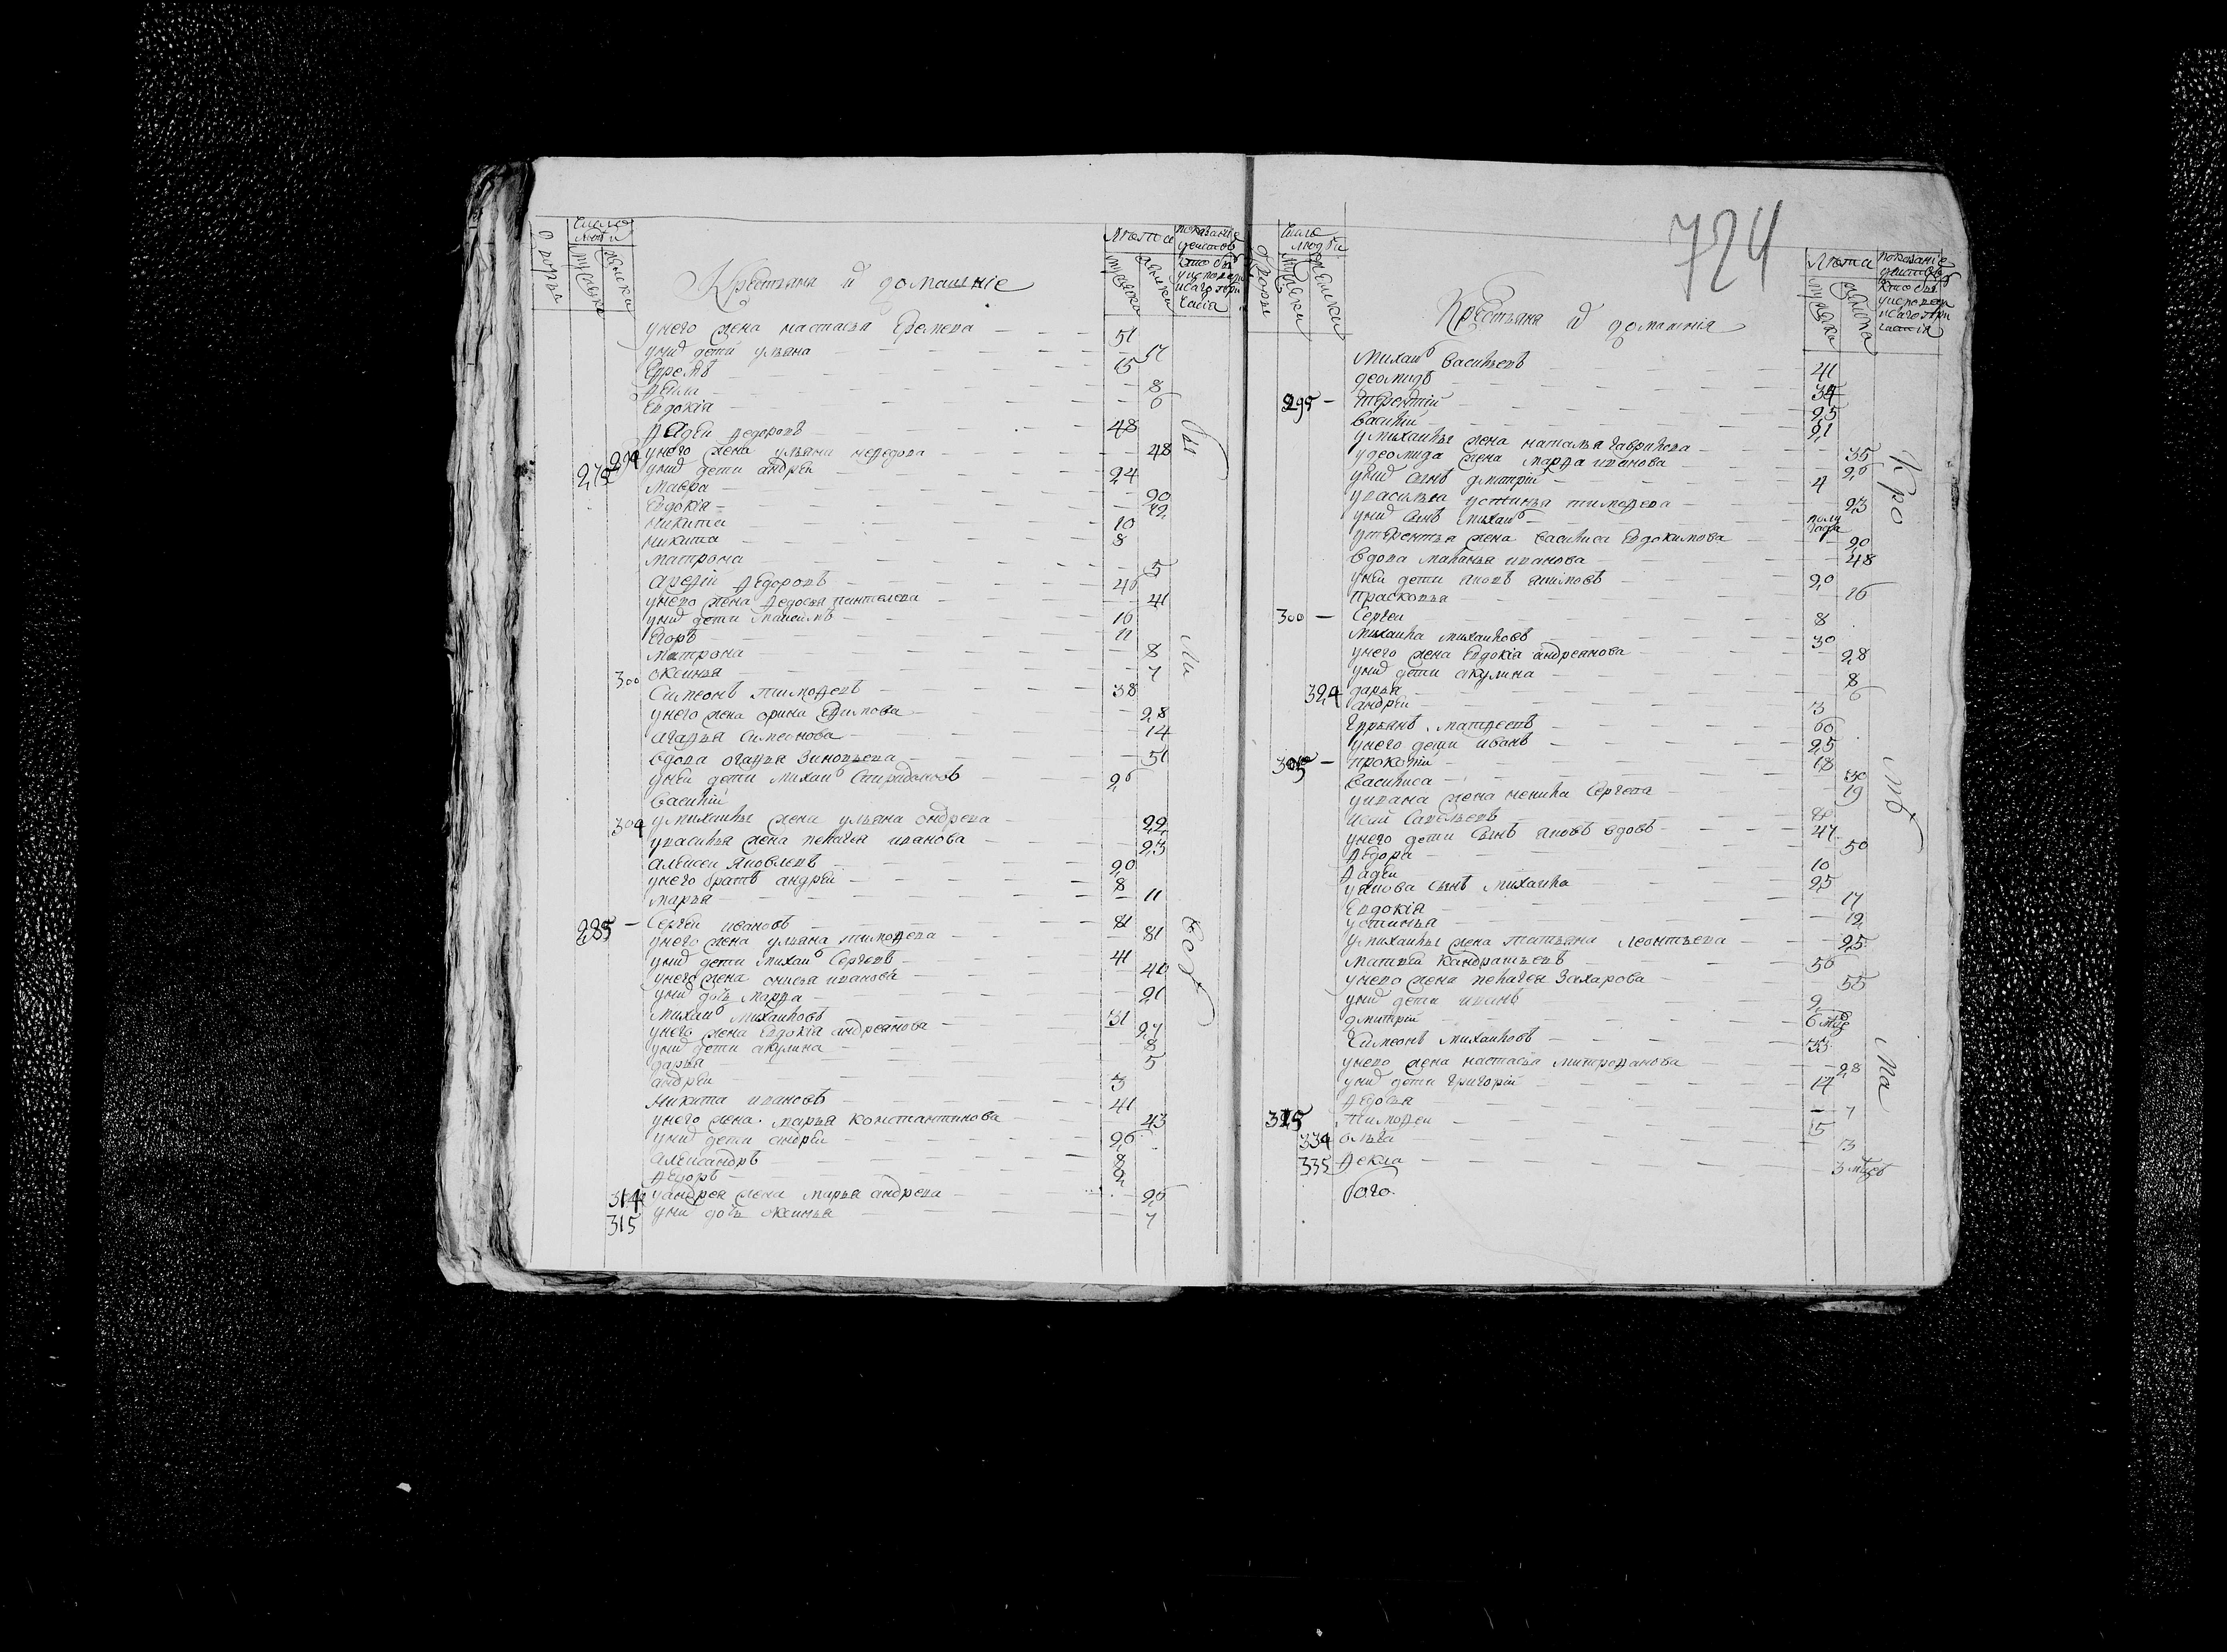 Число людей
Дворы
мужска
женски
Крестьяне и домашніе
Лѣта
мужска
женски
показаніе
кто былъ
у исповеди
и святаго при
частія
у него жена настасья
51
у них дети ульяна
17
Ефремъ
15
Фекла
8
Евдокія
6
Фадей Федоровъ
48
294
у него жена ульяна мефодова
48
275
у них дети андрей
24
Мавра
20
Евдокія
12
Никита
10
Никита
8
Матрона
5
арефій Федоровъ
46
у него жена Федосья пантелева
41
у них дети Мануилъ
16
Егоръ
11
Матрона
8
300
оксинья
7
Симеонъ тимофевъ
38
у него жена орина Ефимова
28
агафья Симеонова
14
вдова огафья Зиновьева
51
у ней дети Михаилъ Спиридоновъ
26
Василій
304
у михаилы жена ульяна андрева
22
у василья жена пелагея иванова
23
алексеи яковлевъ
20
у него братъ андрей
8
марья
11
285
Сергей ивановъ
81
у него жена ульяна тимофева
81
у них дети Михаилъ Сергеевъ
41
у него жена онисья иванова
40
у них дочь Марфа
21
Михаилъ Михаиловъ
31
у него жена Евдокія андреянова
27
у них дети акулина
8
дарья
5
андрей
3
Никита ивановъ
41
у него жена марья константинова
43
у них дети андрей
26
александръ
8
Федоръ
2
314
у андрея жена марья андрева
26
315
у них дочь оксинья
7
Бы
ли
всѣ
724
Число людей
Дворы
мужски
женски
Крестьяне и домашнія
Лѣта
мужска
женска
показаніе
кто былъ
у исповеди
и святаго при
частія
Михаилъ Васильевъ
41
деомидъ
34
295
терентій
25
Василій
21
у михаилы жена наталья гаврилова
35
у деомида жена марфа иванова
26
у них сынъ дмитрій
4
у василья устинья тимофева
23
у них сынъ михаилъ
полу
года
у терентья жена василиса Евдокимова
20
вдова маланья иванова
48
у ней дети яковъ якимовъ
20
Прасковья
16
300
Сергеи
8
Михаила михаиловъ
30
у него жена Евдокія андреянова
28
у них дети акулина
8
324
дарья
6
андрей
3
гурьянъ матфеевъ
60
у него дети иванъ
25
305
прокопій
18
Василиса
30
у ивана жена ненила Сергева
19
исай Савельевъ
у него дети сынъ яковъ вдовъ
47
Федора
50
Фадей
10
у якова сынъ Михаила
25
Евдокія
17
устинья
12
у михаилы жена татьяна леонтьева
25
Матвей Кандратьевъ
56
у него жена пелагея Захарова
55
у них дети иванъ
2
дмитрій
6 мце
Симеонъ михаиловъ
33
у него жена настасья митрофанова
28
у них дети григорій
14
Федосья
7
315
Тимофеи
15
334
ольга
13
335
Фекла
3 мцев
Того
Кро
мѣ
ма